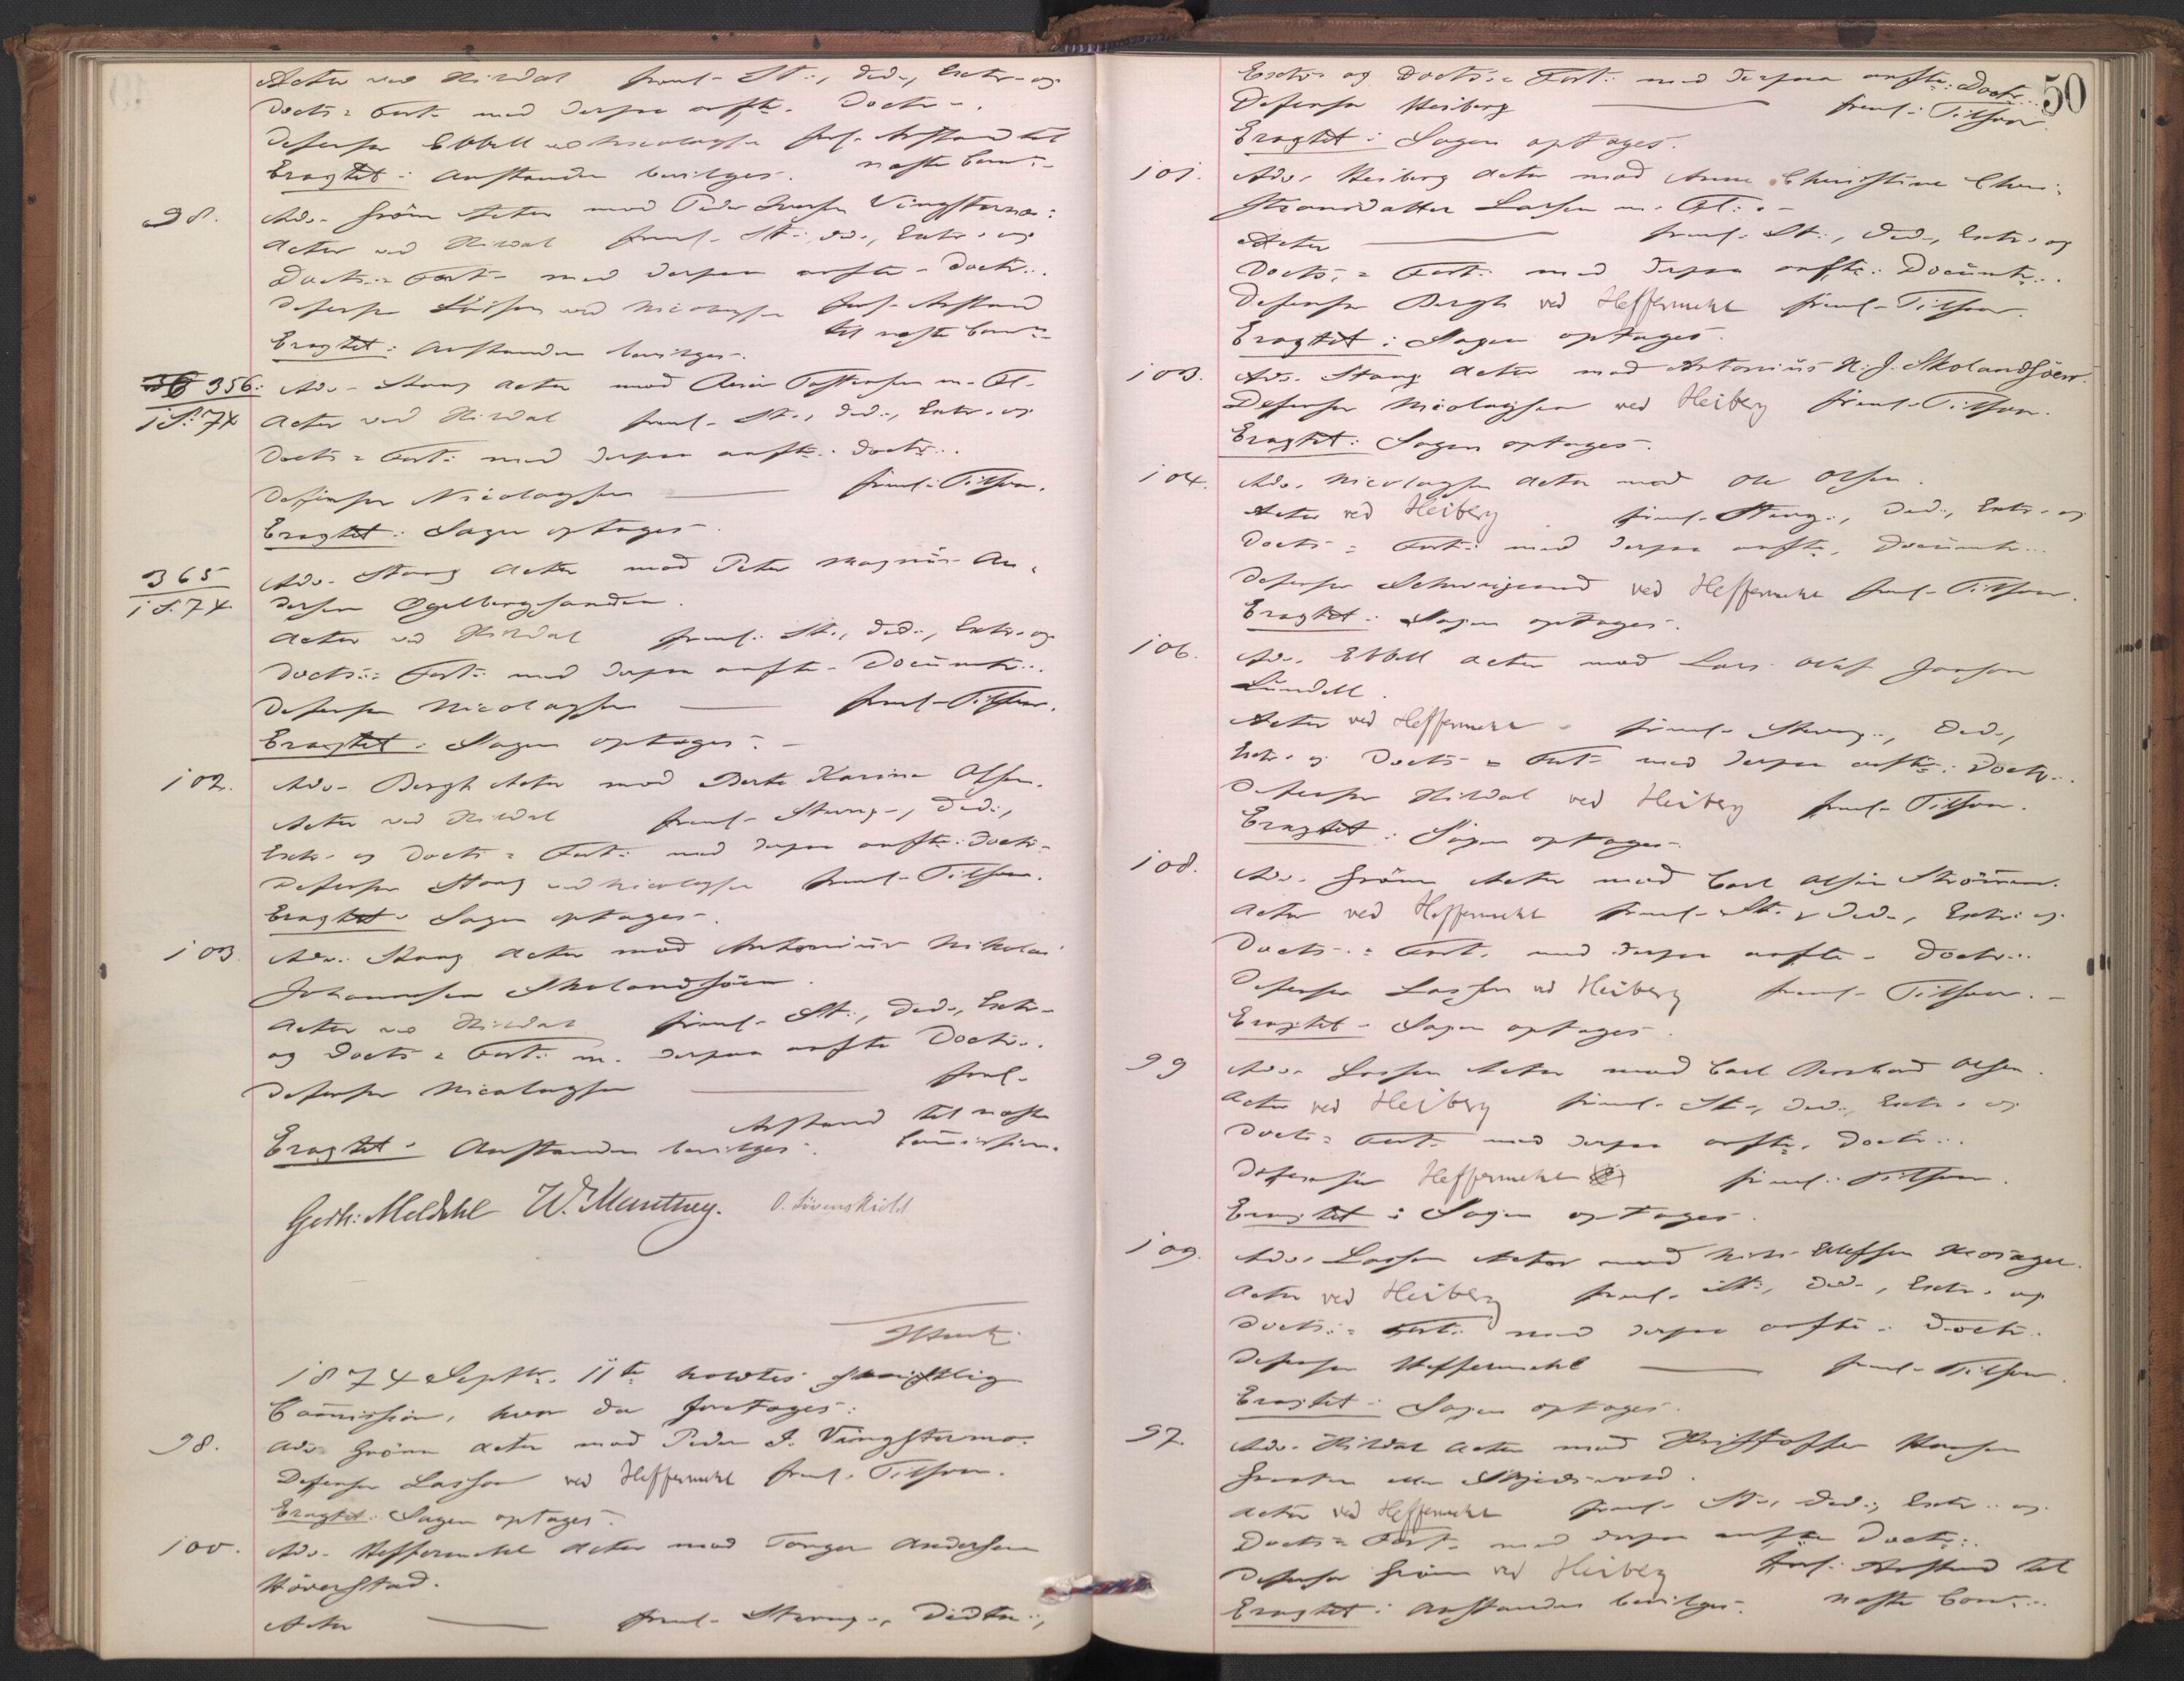 Actor ved Hirdal freml. St., Ded., Extr. og
Docts: Fort. med derpaa anfte. Doctr.
Defensor Ebbell ved Nicolaysen forl. Anstand til
næste Comm.
Eragtet: Anstanden bevilges.
98. Adv. Grönn Actor mod Peder Iversen Vingstermo:
Actor ved Hirdal freml. St., Ded., Extr. og
Docts: Fort. med derpaa anfte. Doctr.
Defensor Lassen ved Nicolaysen forl. Anstand
til næste Comm.
Eragtet: Anstanden bevilges.
356: Adv. Stang Actor mod Tostensen m. Fl.
i S. 74 Actor ved Hirdal freml. St., Ded., Extr. og
Docts: Fort. med derpaa anfte. Doctr.
Defensor Nicolaysen — freml. Tilsvar.
Eragtet: Sagen optages.
365 Adv. Stang Actor mod Peter Magnus An-
i S. 74. dersen Egelbergsanden.
Actor ved Hirdal freml. St., Ded., Extr. og
Docts: Fort. med derpaa anfte. Documtr.
Defensor Nicolaysen — freml. Tilsvar.
Eragtet: Sagen optages.
102. Adv. Bergh Actor mod Berte Karine Olsen.
Actor ved Hirdal freml. Stevng., Ded.,
Extr. og Docts: Fort. med derpaa anfte. Doctr.
Defensor Stang ved Nicolaysen freml. Tilsvar.
Eragtet: Sagen optages.
103. Adv. Stang Actor mod Antonius Nikolai
Johannesen Skolandsöen.
Actor ved Hirdal freml. St., Ded., Extr.
og Docts: Fort. m. derpaa anfte Doctr.
Defensor Nicolaysen — forl.
Anstand til næste
Eragtet: Anstanden bevilges. Commission.
Gerh: Meldahl W. Munthey. O. Lövenskiold
1874 Septbr. 11te holdtes skriftlig
Commission, hvor da foretoges:
98. Adv. Grönn Actor mod Peder I. Vingstermo.
Defensor Lassen ved Heffermehl freml. Tilsvar.
Eragtet: Sagen optages.
100. Adv. Heffermehl Actor mod Torger Andersen
Höverstad.
Actor — freml. Stevng., Dedtn.,
50
Extr. og Docts: Fort. med derpaa anfte. Doctr.
Defensor Heiberg — freml. Tilsvar.
Eragtet: Sagen optages.
101. Adv. Heiberg Actor mod Anne Christine Chri-
stiansdatter Larsen m. Fl.
Actor — freml. St., Ded., Extr. og
Docts: Fort. med derpaa anfte. Documtr.
Defensor Bergh ved Heffermehl freml. Tilsvar.
Eragtet: Sagen optages.
103. Adv. Stang Actor mod Antonius N. J. Skolandsöen.
Defensor Nicolaysen ved Heiberg freml. Tilsvar.
Eragtet: Sagen optages.
104. Adv. Nicolaysen Actor mod Ole Olsen.
Actor ved Heiberg freml. Stevng., Ded., Extr. og
Docts: Fort. med derpaa anfte. Documtr.
Defensor Schweigaard ved Heffermehl freml. Tilsvar.
Eragtet: Sagen optages.
106. Adv. Ebbell Actor mod Lars Olaf Jonson
Lundell.
Actor ved Heffermehl freml. Stevng., Ded.,
Extr. og Docts: Fort. med derpaa anfte. Doctr.
Defensor Hirdal ved Heiberg freml. Tilsvar.
Eragtet: Sagen optages.
108. Adv. Grönn Actor mod Carl Olsen Strömmen.
Actor ved Heffermehl freml. St., Ded., Extr. og
Docts: Fort. med derpaa anfte. Doctr.
Defensor Lassen ved Heiberg freml. Tilsvar.
Eragtet: Sagen optages.
99 Adv. Lassen Actor mod Carl Bernhard Olsen.
Actor ved Heiberg freml. St., Ded., Extr. og
Docts: Fort. med derpaa anfte. Doctr.
Defensor Heffermehl freml. Tilsvar.
Eragtet: Sagen optages.
109. Adv. Lassen Actor mod Nils Ellefsen
Actor ved Heiberg freml. St., Ded., Extr. og
Docts: Fort. med derpaa anfte. Doctr.
Defensor Heffermehl — freml. Tilsvar.
Eragtet: Sagen optages.
97. Adv. Hirdal Actor mod Kristoffer Hansen
eller
Actor ved Heffermehl freml. St., Ded., Extr. og
Docts: Fort. med derpaa anfte Doctr.
Defensor Grönn ved Heiberg forl. Anstand til
Eragtet: Anstanden bevilges. næste Comm.